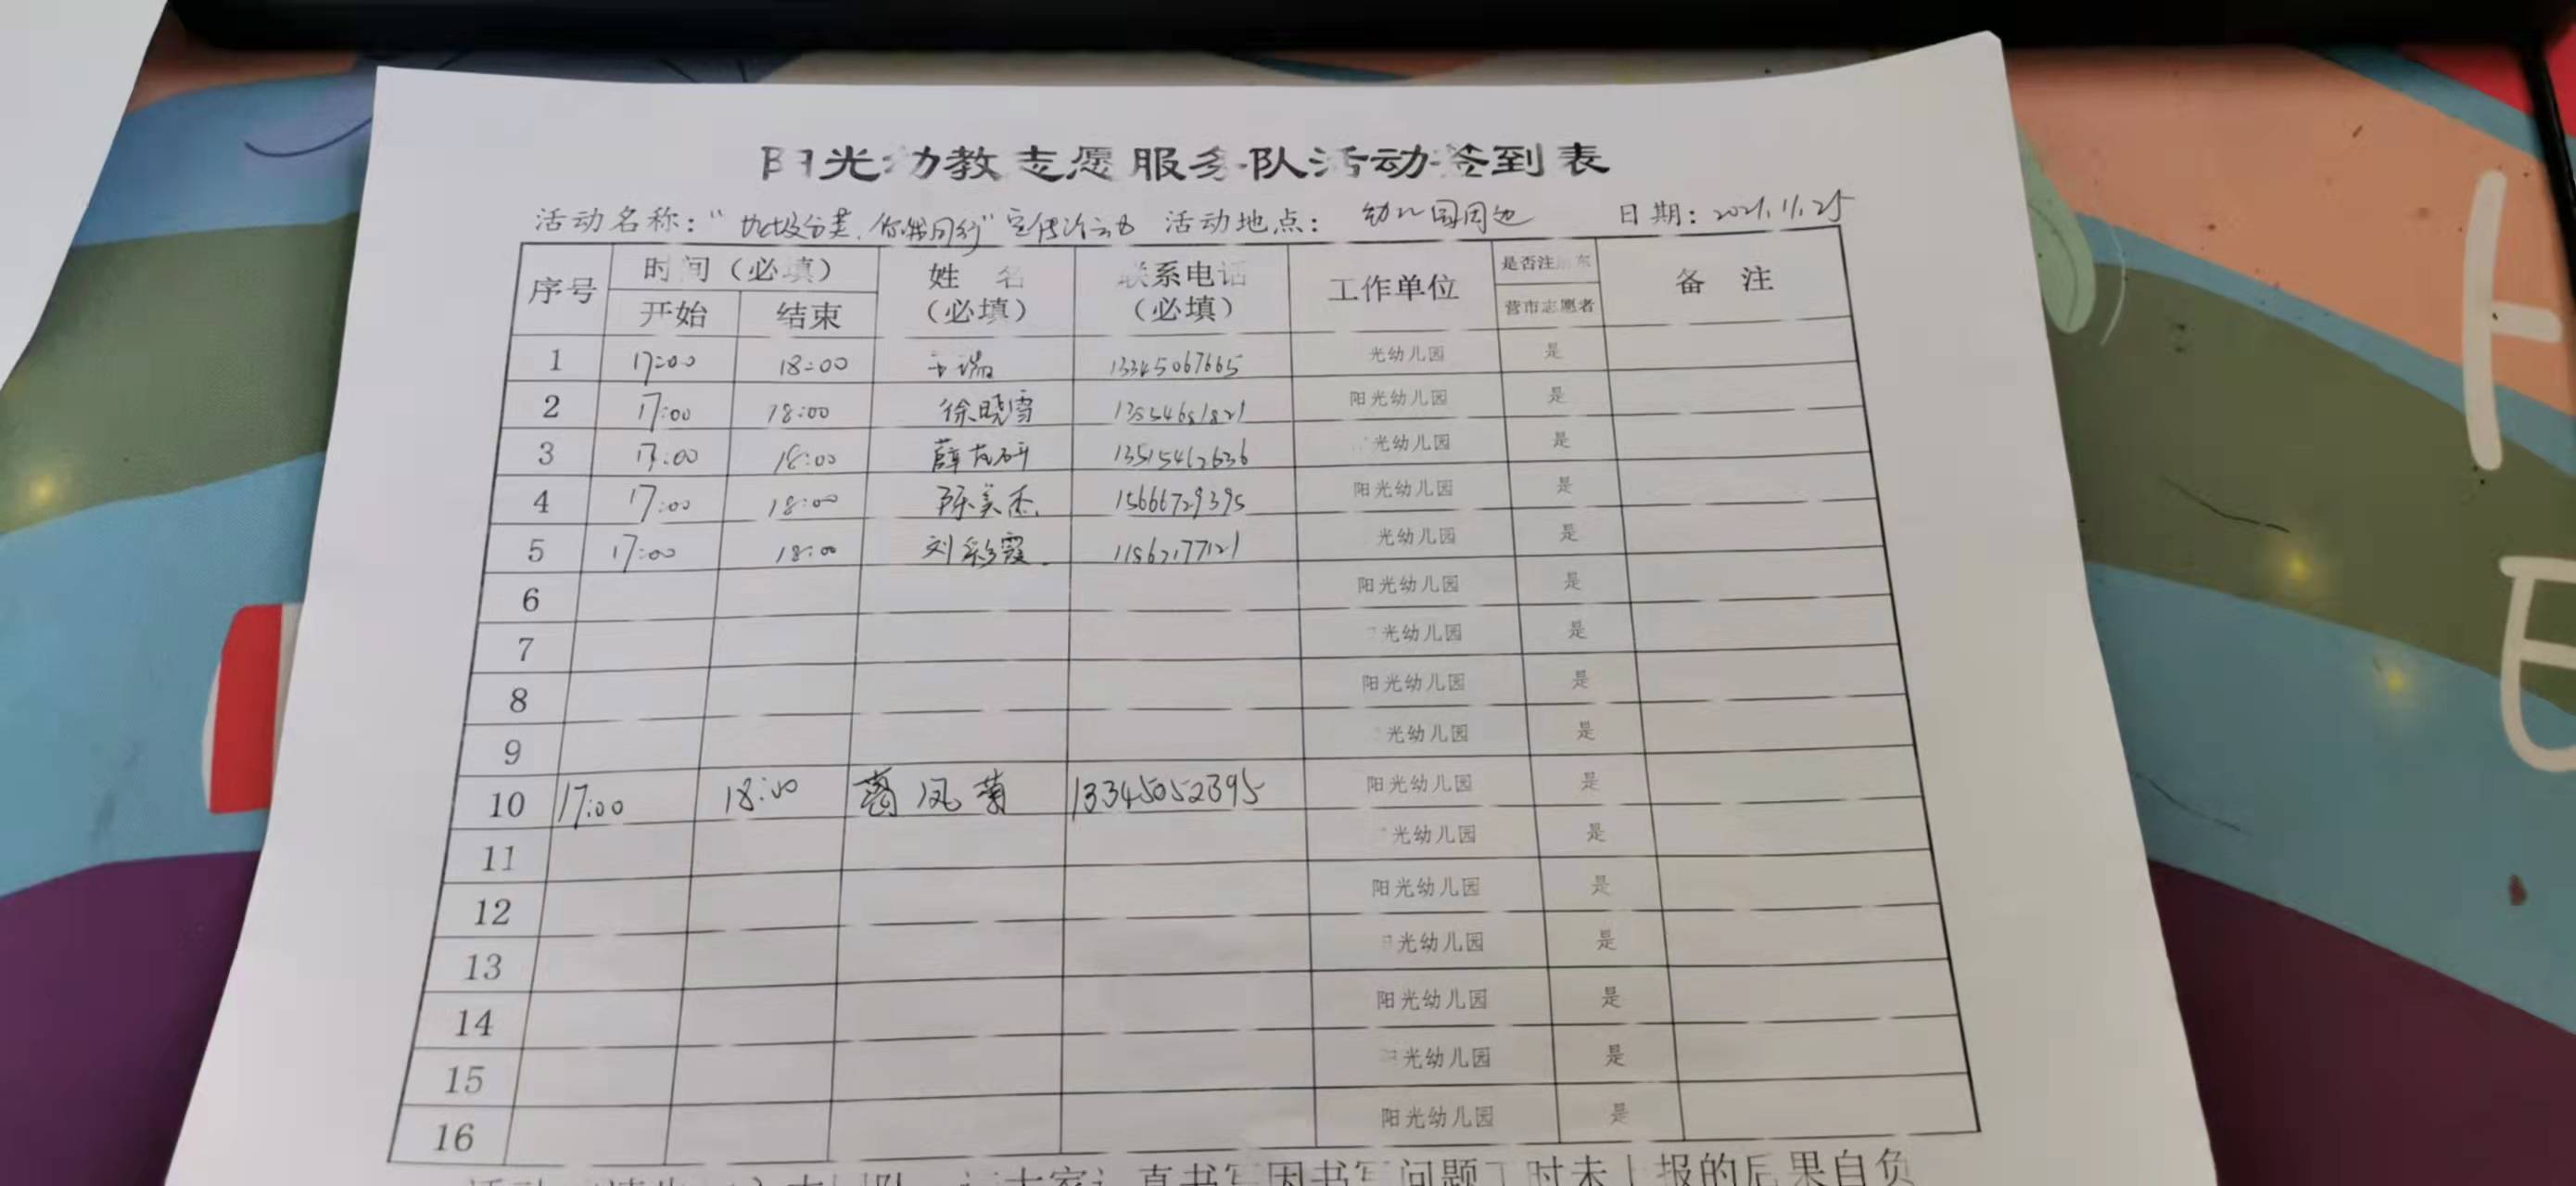 阳光幼教志愿服务队活动签到表
活动名称：“垃圾分类，你我同行”宣传活动 活动地点：幼儿园周边 日期：2021.11.25
序号 时间（必填） 姓 名（必填） 联系电话（必填） 工作单位 是否注册东营市志愿者 备 注
开始 结束
1 17:00 18:00 13345067665 光幼儿园 是
2 17:00 18:00 徐晓雪 13554681821 阳光幼儿园 是
3 17:00 18:00 薛芃研 13515462636 光幼儿园 是
4 17:00 18:00 陈美杰 15666729395 阳光幼儿园 是
5 17:00 18:00 刘彩霞 光幼儿园 是
6 阳光幼儿园 是
7 光幼儿园 是
8 阳光幼儿园 是
9 光幼儿园 是
10 17:00 18:00 葛凤菊 13345052395 阳光幼儿园 是
11 光幼儿园 是
12 阳光幼儿园 是
13 光幼儿园 是
14 阳光幼儿园 是
15 光幼儿园 是
16 阳光幼儿园 是
真书写因书写问题 时未上报的后果自负